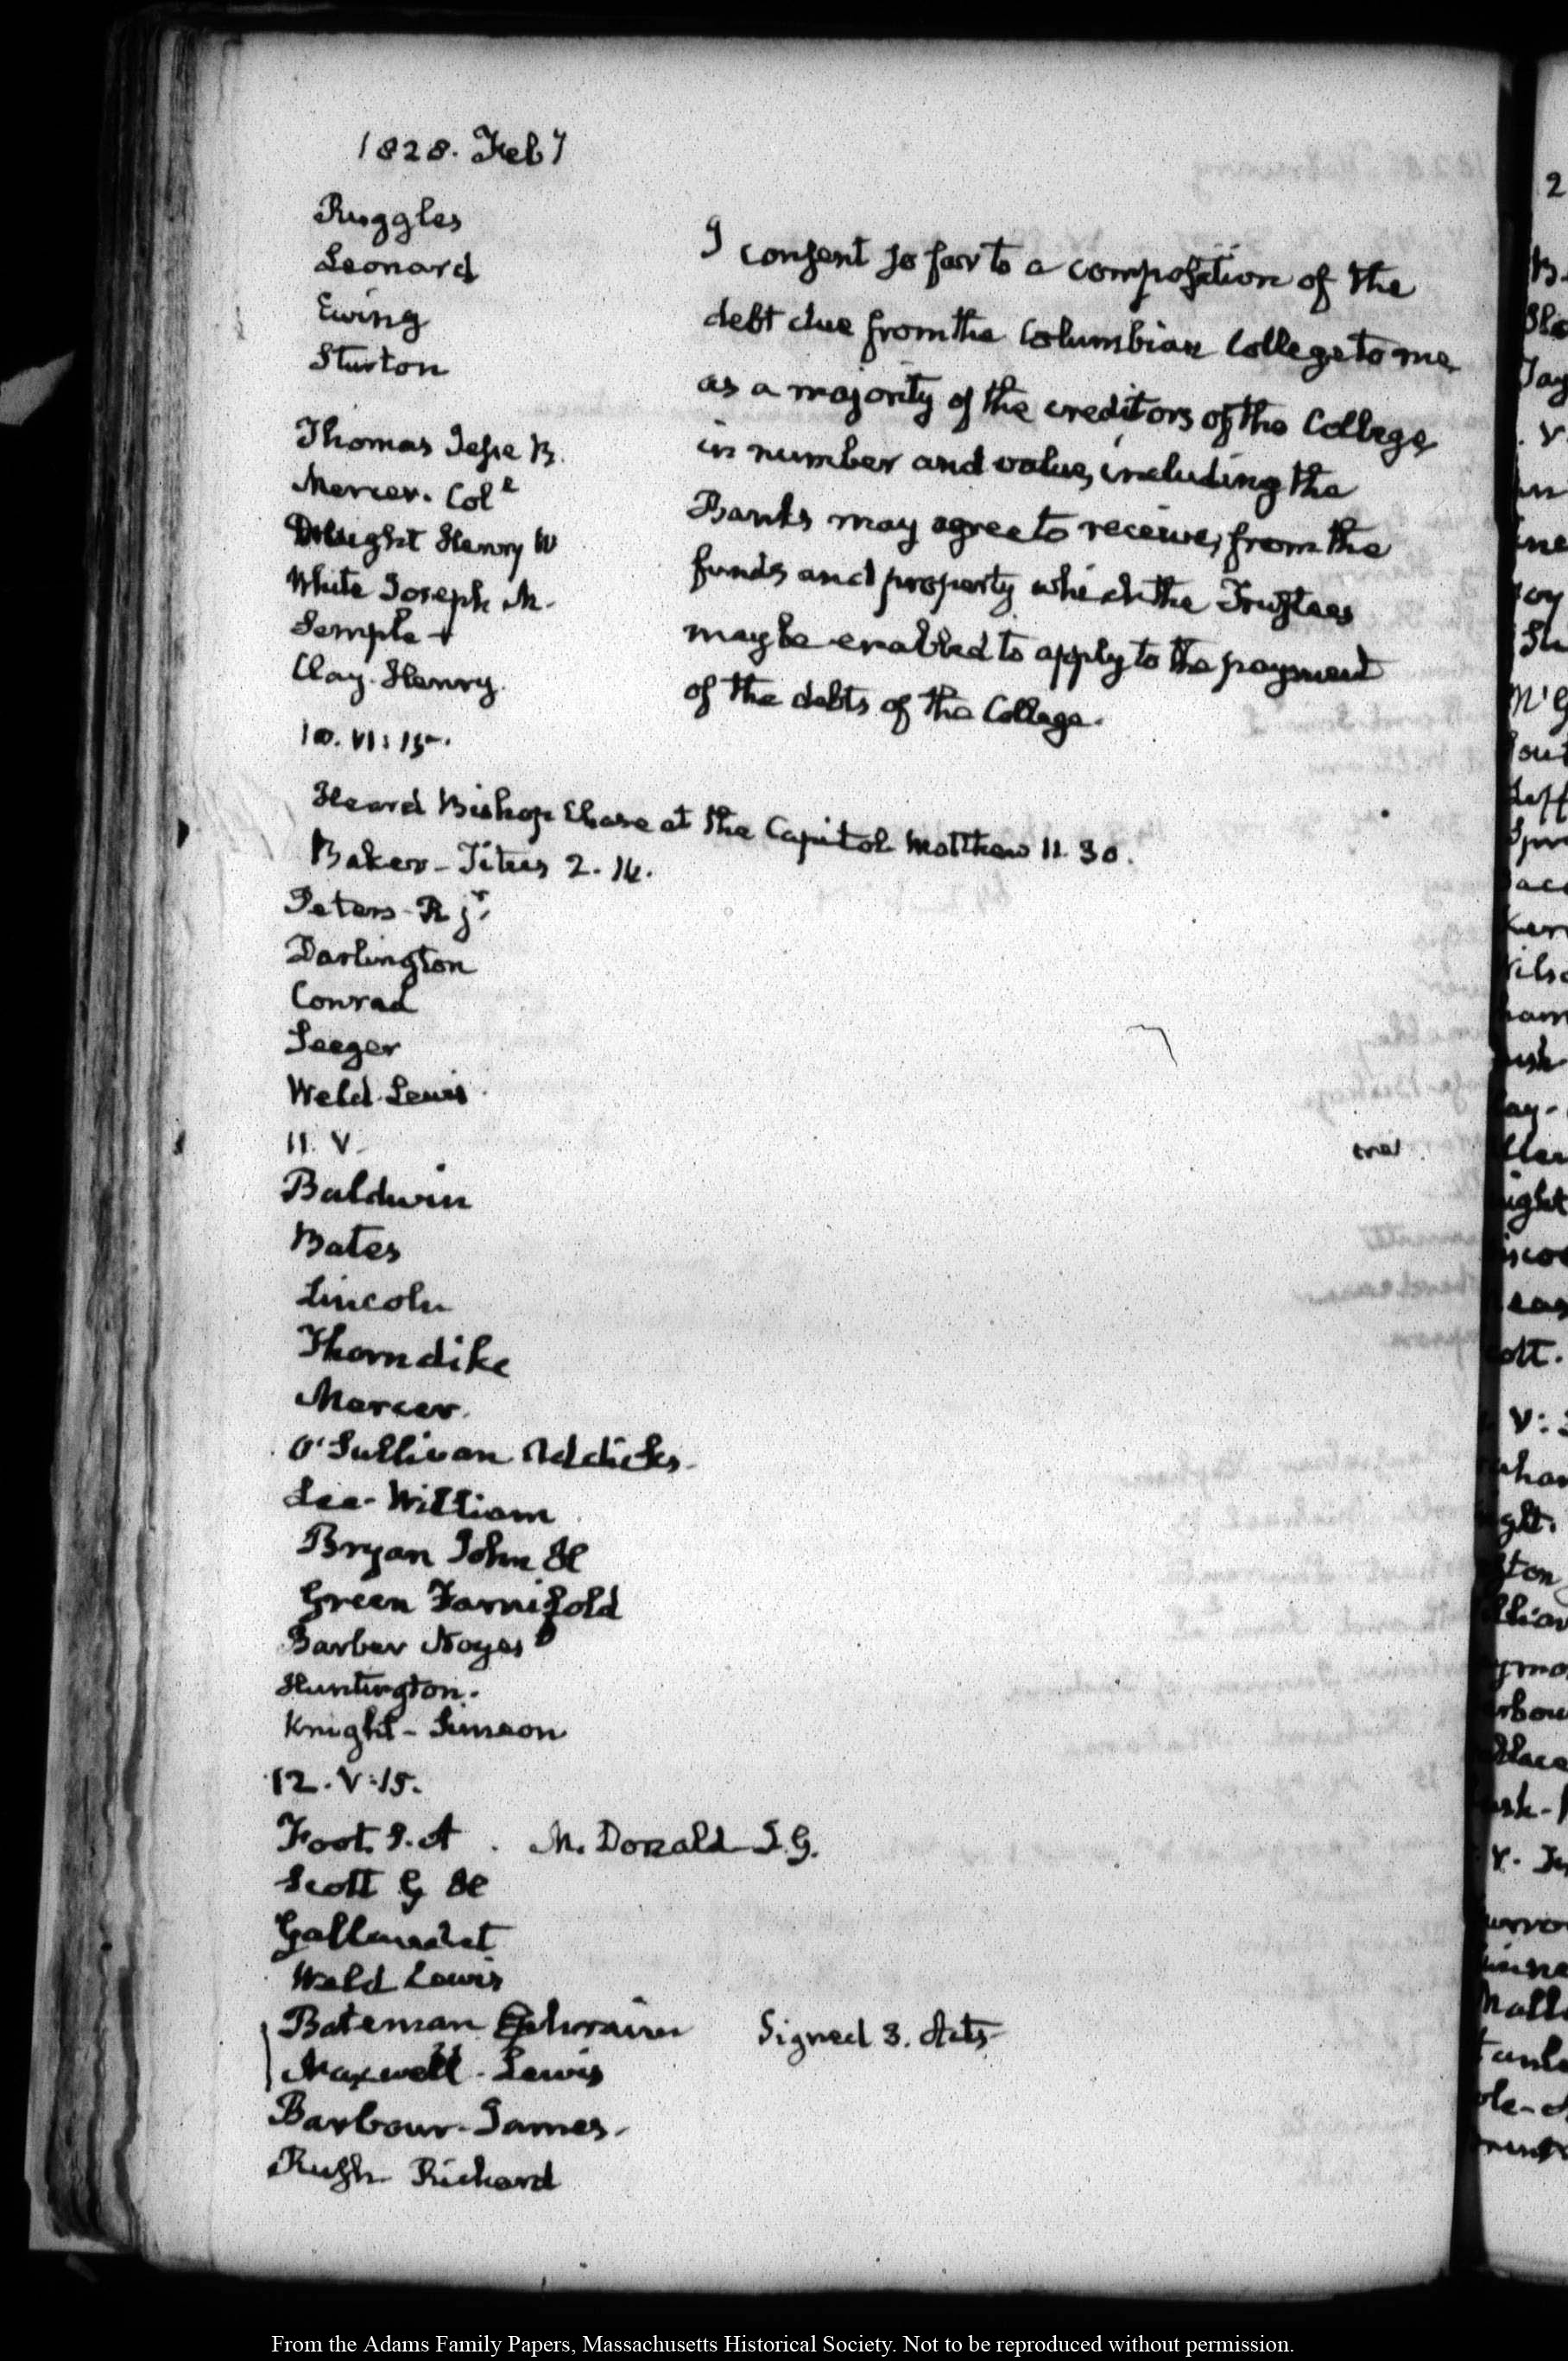 1828. Feby
Ruggles
Leonard
Ewing
Sturton
Thomas Jesse B.
Mercer. Coll
Dwight Henry W
White Joseph M.
Semple +
Clay. Henry.
I consent so far to a composition of the
debt due from the Columbian College to me,
as a majority of the creditors of the College
in number and value, including the
Banks may agree to receive, from the
funds and property which the Trustees
may be enabled to apply to the payment
of the debts of the College.
10. VI: 15.
Heard Bishop Chase at the Capitol Matthew 11. 30.
Baker - Titus 2. 14.
Peters - R jr.
Darlington
Conrad
Seeger
Weld. Lewis
11. V.
Baldwin
Bates
Lincoln
Thorndike
Mercer.
O'Sullivan Addicks.
Lee - William
Bryan John H
Green Farnifold
Barber Noyes
Huntington.
Knight - Simeon
12. V:15.
Foot. S. A . McDonald S. G.
Scott G H
Gallaudet
Weld Lewis
Bateman Ephraim Signed 3. Acts
Maxwell - Lewis
Barbour - James -
Rush Richard
From the Adams Family Papers, Massachusetts Historical Society. Not to be reproduced without permission.